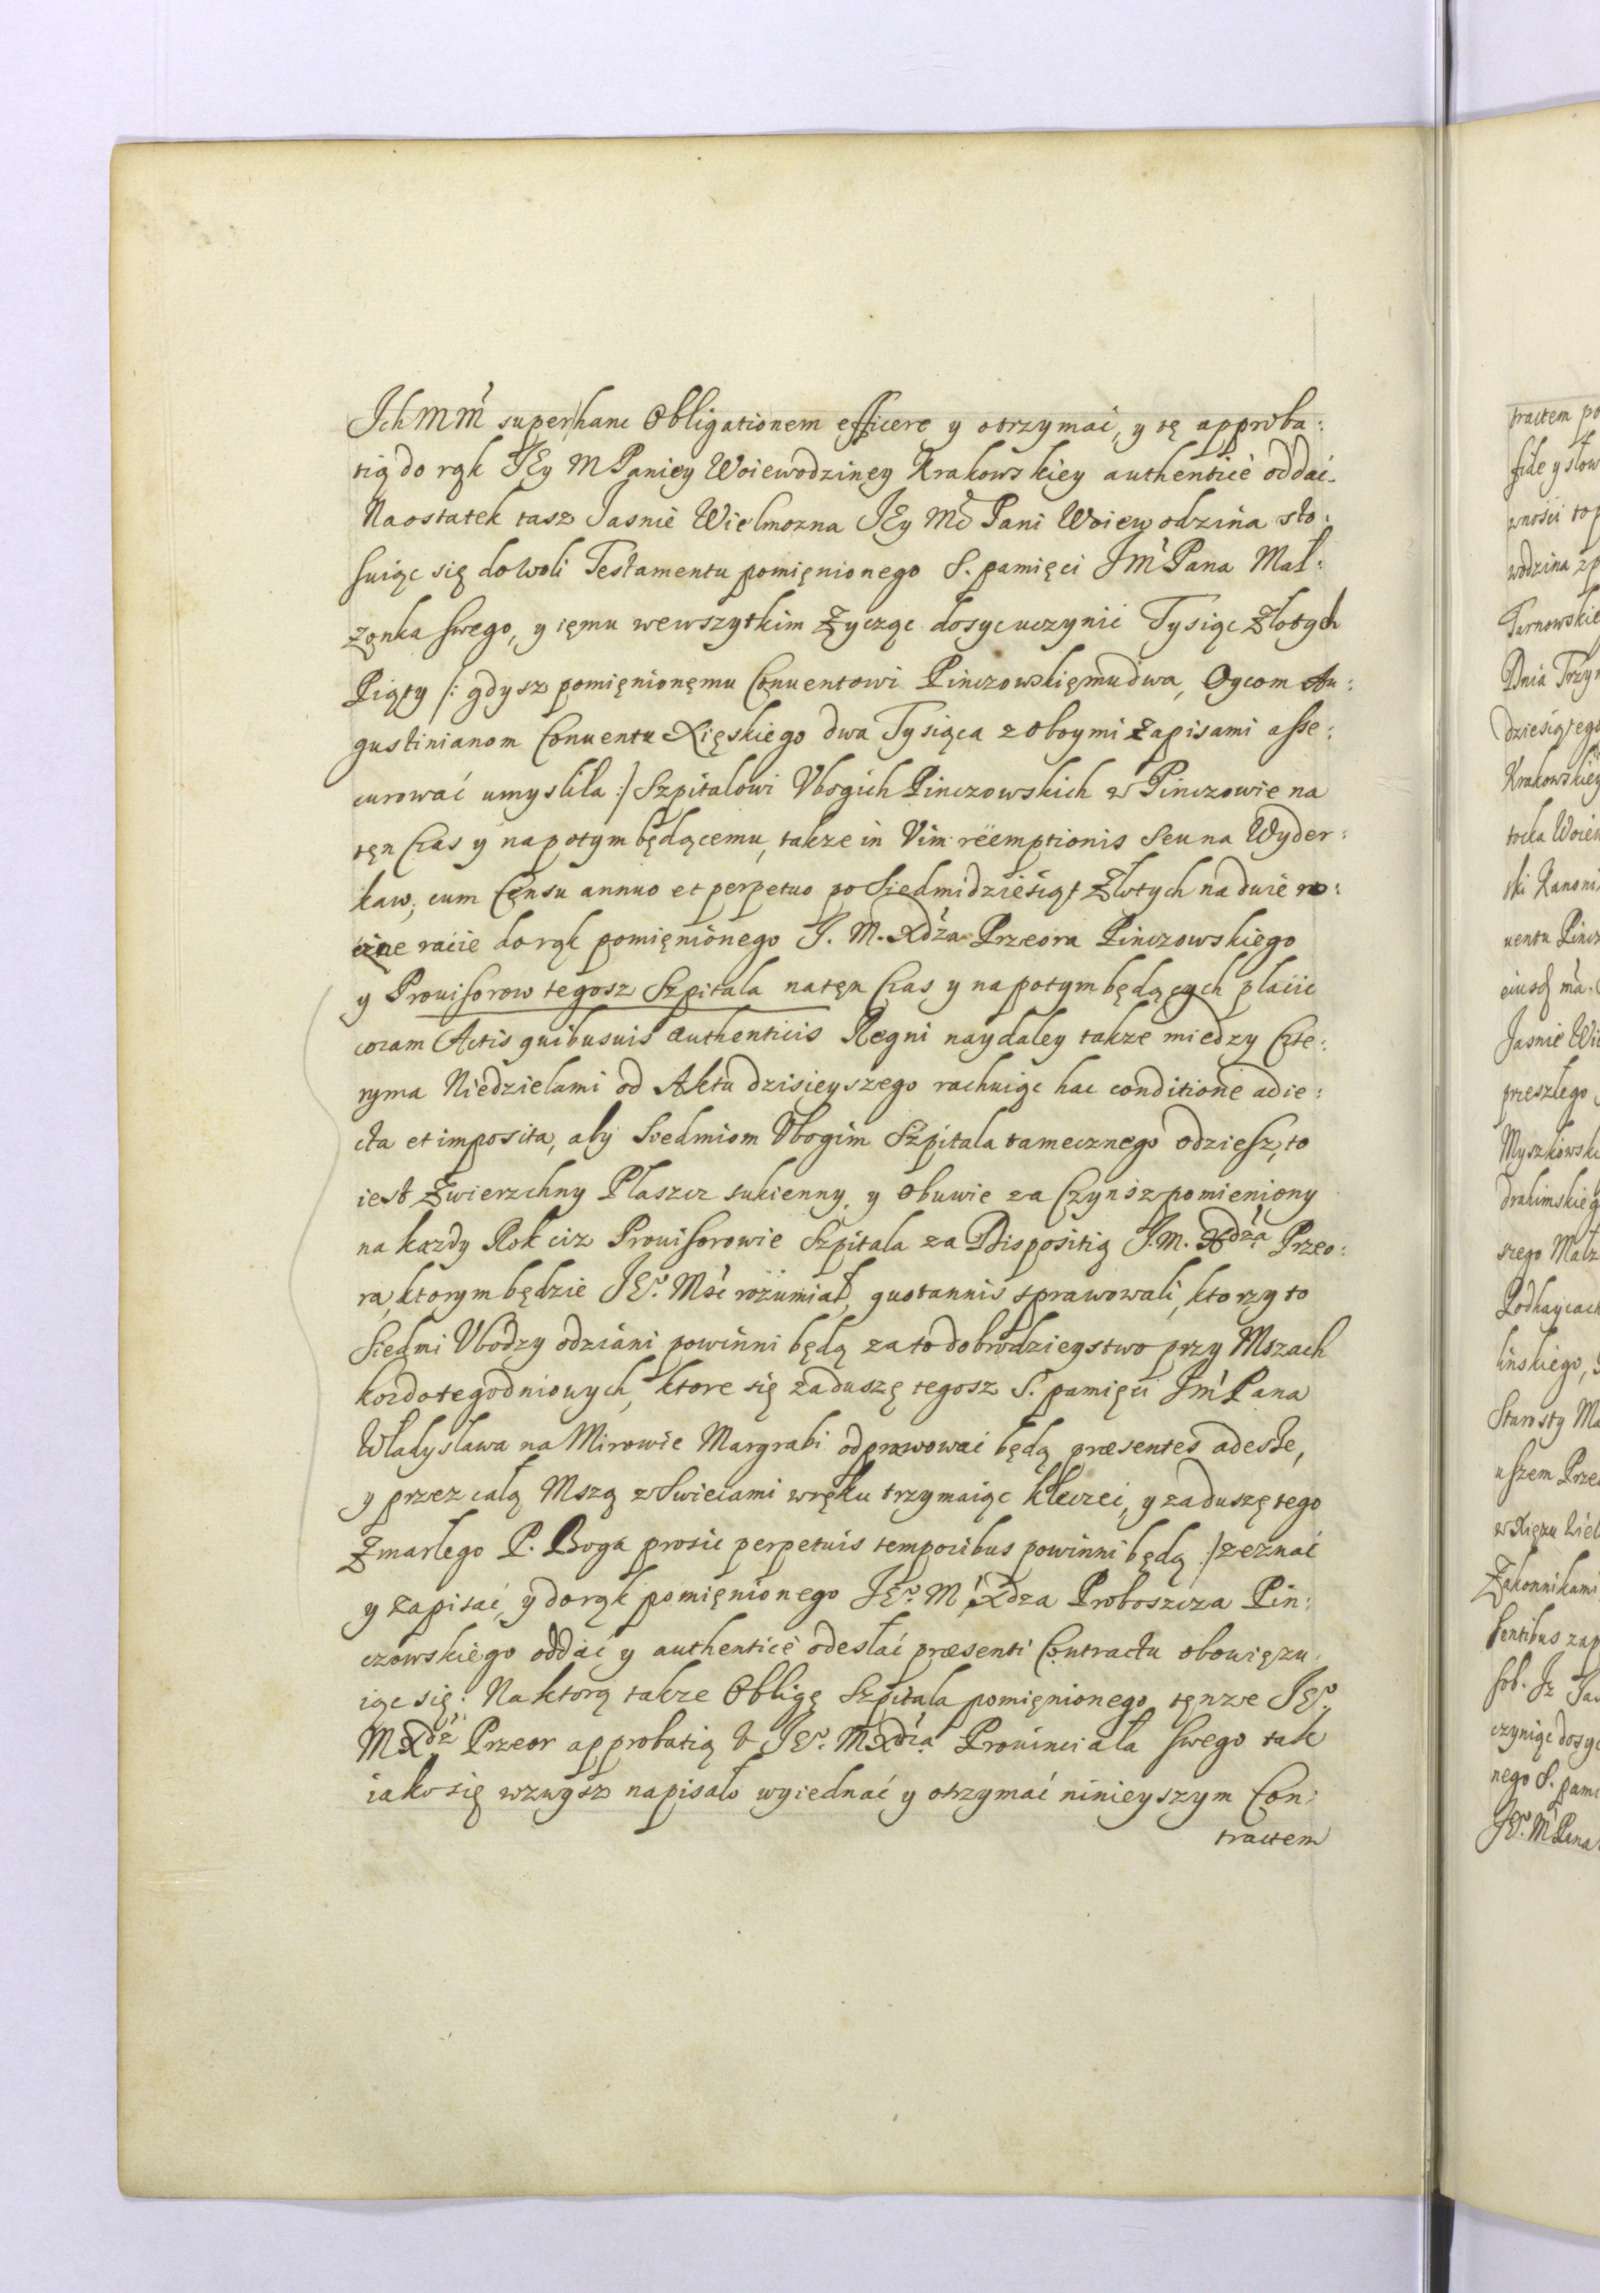 Ich Mm̃ super hanc Obligationem efficere y otrzymać, y tę approba:
tią do rąk JEy M Paniey Woiewodziney Krakowskiey authenticè oddać.
Naostatek tasz Jasnie Wielmozna JEy Mć Pani Woiewodzina sto:
suiąc się do woli Testamentu pomięnionego S. pamięci JM Pana Mał:
zonka swego, y iemu wewszytkim Zycząc dosyc uczynić Tysiąc Złotych
Piąty /: gdysz pomięnionemu Conuentowi Pinczowskięmu dwa, Oycom Au:
gustinianom Conuentu Xięskiego dwa Tysiąca z oboymi Zapisami asse:
curować umysliła :/ Szpitalowi Vbogich Pinczowskich w Pinczowie na
tęn Czas y napotym będącemu, takze in Vim rëemptionis seu na Wyder:
kaw, cum Censu annuo et perpetuo po Siedmidziesiąt Złotych na dwie ro:
czne racie do rąk pomięnionego J. M. Xdza Przeora Pinczowskiego
y Prouisorow tegosz Szpitala natęn Czas y napotym będących płacić
coram Actis quibusuis authenticis Regni naydaley takze miedzy Czte:
ryma Niedzielami od Aktu dzisieyszego rachuiąc hac conditione adie:
cta et imposita, aby Siedmiom Vbogim Szpitala tamecznego odziesz, to
iest Zwierzchny Płaszcz sukienny, y obuwie za Czynsz pomieniony
na kazdy Rok ciz Prouisorowie Szpitala za Dispositią J. M. Xdza Przeo:
ra, ktorym będzie JE°. Mść rozumiał, quotannis sprawowali, ktorzy to
Siedmi Vbodzy odziani powinni będą za to dobrodzieystwo przy Mszach
kozdotegodniowych, ktore się zaduszę tegosz S. pamięci Jm̃ Pana
Władysława na Mirowie Margrabi odprawować będą præsentes adesse,
y przez całą Mszą z Swiecami wręku trzymaiąc klęczeć, y zaduszę tego
Zmarłego P. Boga prosić perpetuis temporibus powinni będą :/ zeznać
y zapisać, y do rąk pomięnionego JE°. M Xdza Proboszcza Pin:
czowskiego oddać y authenticè odesłać præsenti Contractu obowięzu:
iąc się: Na ktorą takze Obligę Szpitala pomięnionego tęnze JE°.
M Xdz Przeor approbatią v JE°. M Xdza Prouinciała swego tak
iako się wzwysz napisało wyiednać y otrzymać ninieyszym Con:
tractem